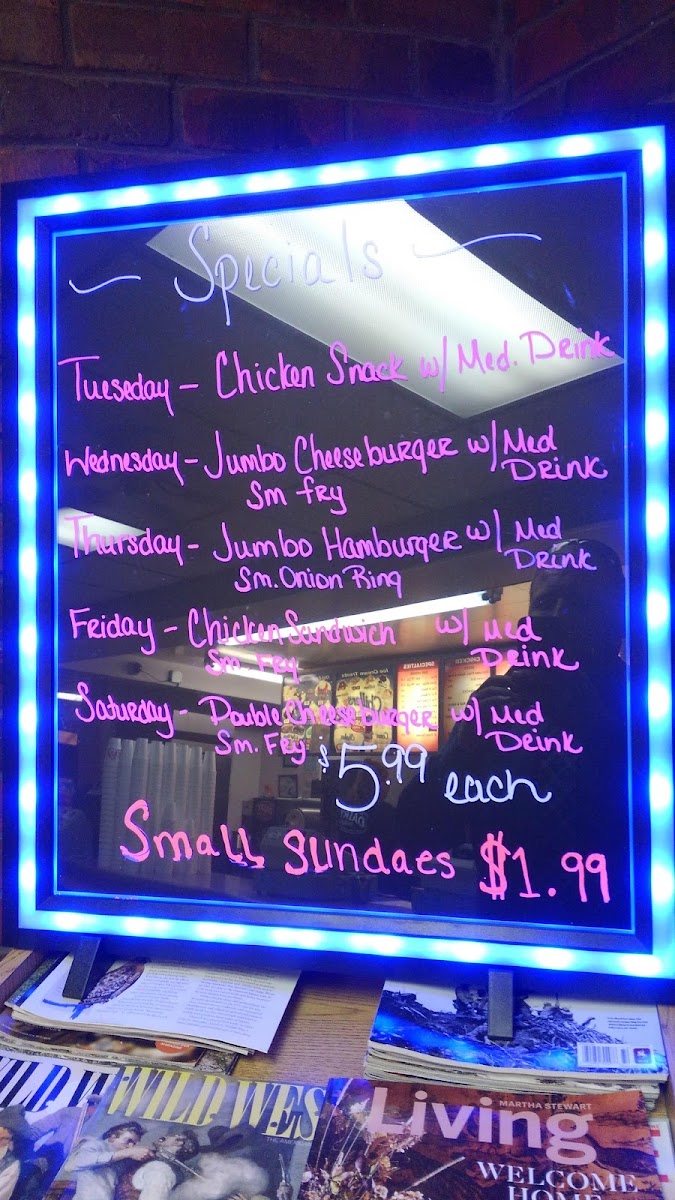 Specials
Tueseday - Chicken Snack w/ Med. Drink
Wednesday - Jumbo Cheeseburger w/ Med Drink
Sm fry
Thursday - Jumbo Hamburger w/ Med Drink
Sm. Onion Ring
Friday - Chicken Sandwich w/ Med Drink
Sm. Fry
Saturday - Double Cheeseburger w/ Med Drink
Sm. Fry
$5.99 each
Small Sundaes $1.99
WILD WES
WILD W
MARTHA STEWART
Living
WELCOME
HOME